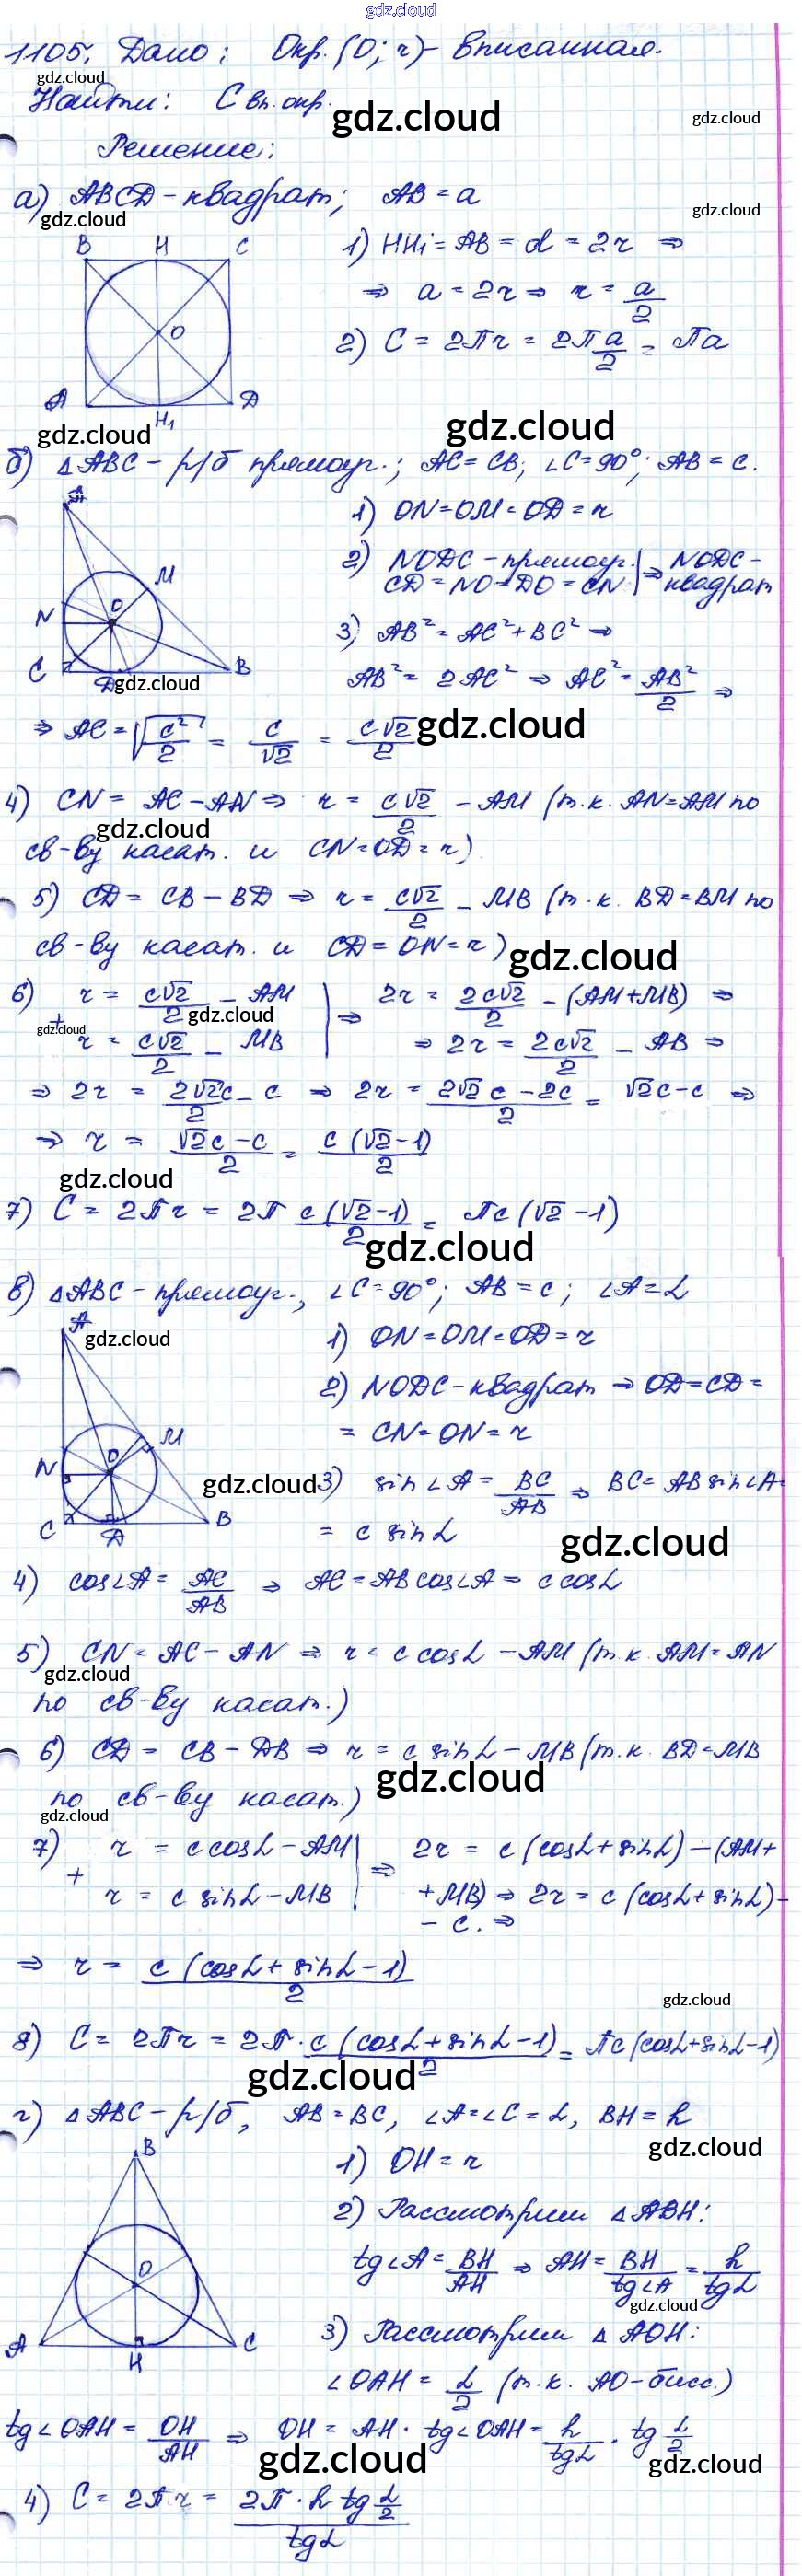 gdz.cloud
1105. Дано: Окр. (O; r) - вписанная.
gdz.cloud
Найти: C вп. окр.
gdz.cloud
gdz.cloud
Решение:
а) ABCD - квадрат; AB = a
gdz.cloud
gdz.cloud
B H C
1) HH₁ = AB = d = 2r ⇒
⇒ a = 2r ⇒ r = a/2
O
2) C = 2πr = 2π a/2 = πa
A H₁ D
gdz.cloud
gdz.cloud
б) △ABC - р/б прямоуг.; AC = CB; ∠C = 90°; AB = c.
A
1) ON = OM = OD = r
M
2) NODC - прямоуг. | ⇒ NODC -
CD = NO = DO = CN | квадрат
N O
3) AB² = AC² + BC² ⇒
C D B
gdz.cloud
AB² = 2AC² ⇒ AC² = AB²/2 ⇒
⇒ AC = √(c²/2) = c/√2 = c√2/2
gdz.cloud
4) CN = AC - AN ⇒ r = c√2/2 - AM (т.к. AN = AM по
gdz.cloud
св-ву касат. и CN = OD = r)
5) CD = CB - BD ⇒ r = c√2/2 - MB (т.к. BD = BM по
св-ву касат. и CD = ON = r)
gdz.cloud
6) r = c√2/2 - AM | ⇒ 2r = 2c√2/2 - (AM + MB) ⇒
gdz.cloud
gdz.cloud
+ r = c√2/2 - MB | ⇒ 2r = 2c√2/2 - AB ⇒
⇒ 2r = 2√2c/2 - c ⇒ 2r = (2√2c - 2c)/2 = √2c - c ⇒
⇒ r = (√2c - c)/2 = c(√2 - 1)/2
gdz.cloud
7) C = 2πr = 2π c(√2 - 1)/2 = πc(√2 - 1)
gdz.cloud
в) △ABC - прямоуг., ∠C = 90°; AB = c; ∠A = α
A
gdz.cloud
1) ON = OM = OD = r
2) NODC - квадрат ⇒ OD = CD =
= CN = ON = r
M
N O
gdz.cloud
3) sin∠A = BC/AB ⇒ BC = AB sin∠A =
C D B
= c sinα
gdz.cloud
4) cos∠A = AC/AB ⇒ AC = AB cos∠A = c cosα
5) CN = AC - AN ⇒ r = c cosα - AM (т.к. AM = AN
gdz.cloud
по св-ву касат.)
6) CD = CB - DB ⇒ r = c sinα - MB (т.к. BD = MB
gdz.cloud
по св-ву касат.)
gdz.cloud
7) r = c cosα - AM | ⇒ 2r = c(cosα + sinα) - (AM +
+ r = c sinα - MB | + MB) ⇒ 2r = c(cosα + sinα) -
- c. ⇒
⇒ r = c(cosα + sinα - 1)/2
gdz.cloud
8) C = 2πr = 2π · c(cosα + sinα - 1)/2 = πc(cosα + sinα - 1)
gdz.cloud
г) △ABC - р/б, AB = BC, ∠A = ∠C = α, BH = h
gdz.cloud
B
1) OH = r
2) Рассмотрим △ABH:
tg∠A = BH/AH ⇒ AH = BH/tg∠A = h/tgα
O
gdz.cloud
3) Рассмотрим △AOH:
A H C
∠OAH = α/2 (т.к. AO - бисс.)
tg∠OAH = OH/AH ⇒ OH = AH · tg∠OAH = h/tgα · tg α/2
gdz.cloud
gdz.cloud
4) C = 2πr = 2π · h tg α/2 / tgα